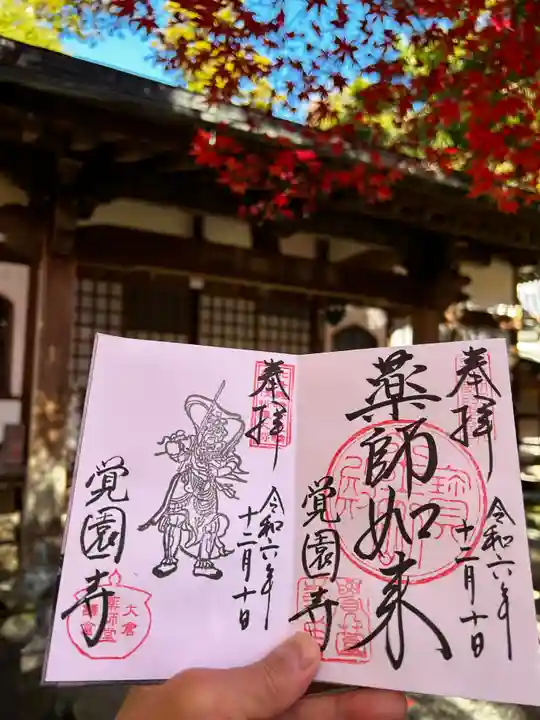 奉拝
令和六年
十二月十日
薬師如来
覚園寺
奉拝
令和六年
十二月十日
覚園寺
大倉
薬師堂
鎌倉